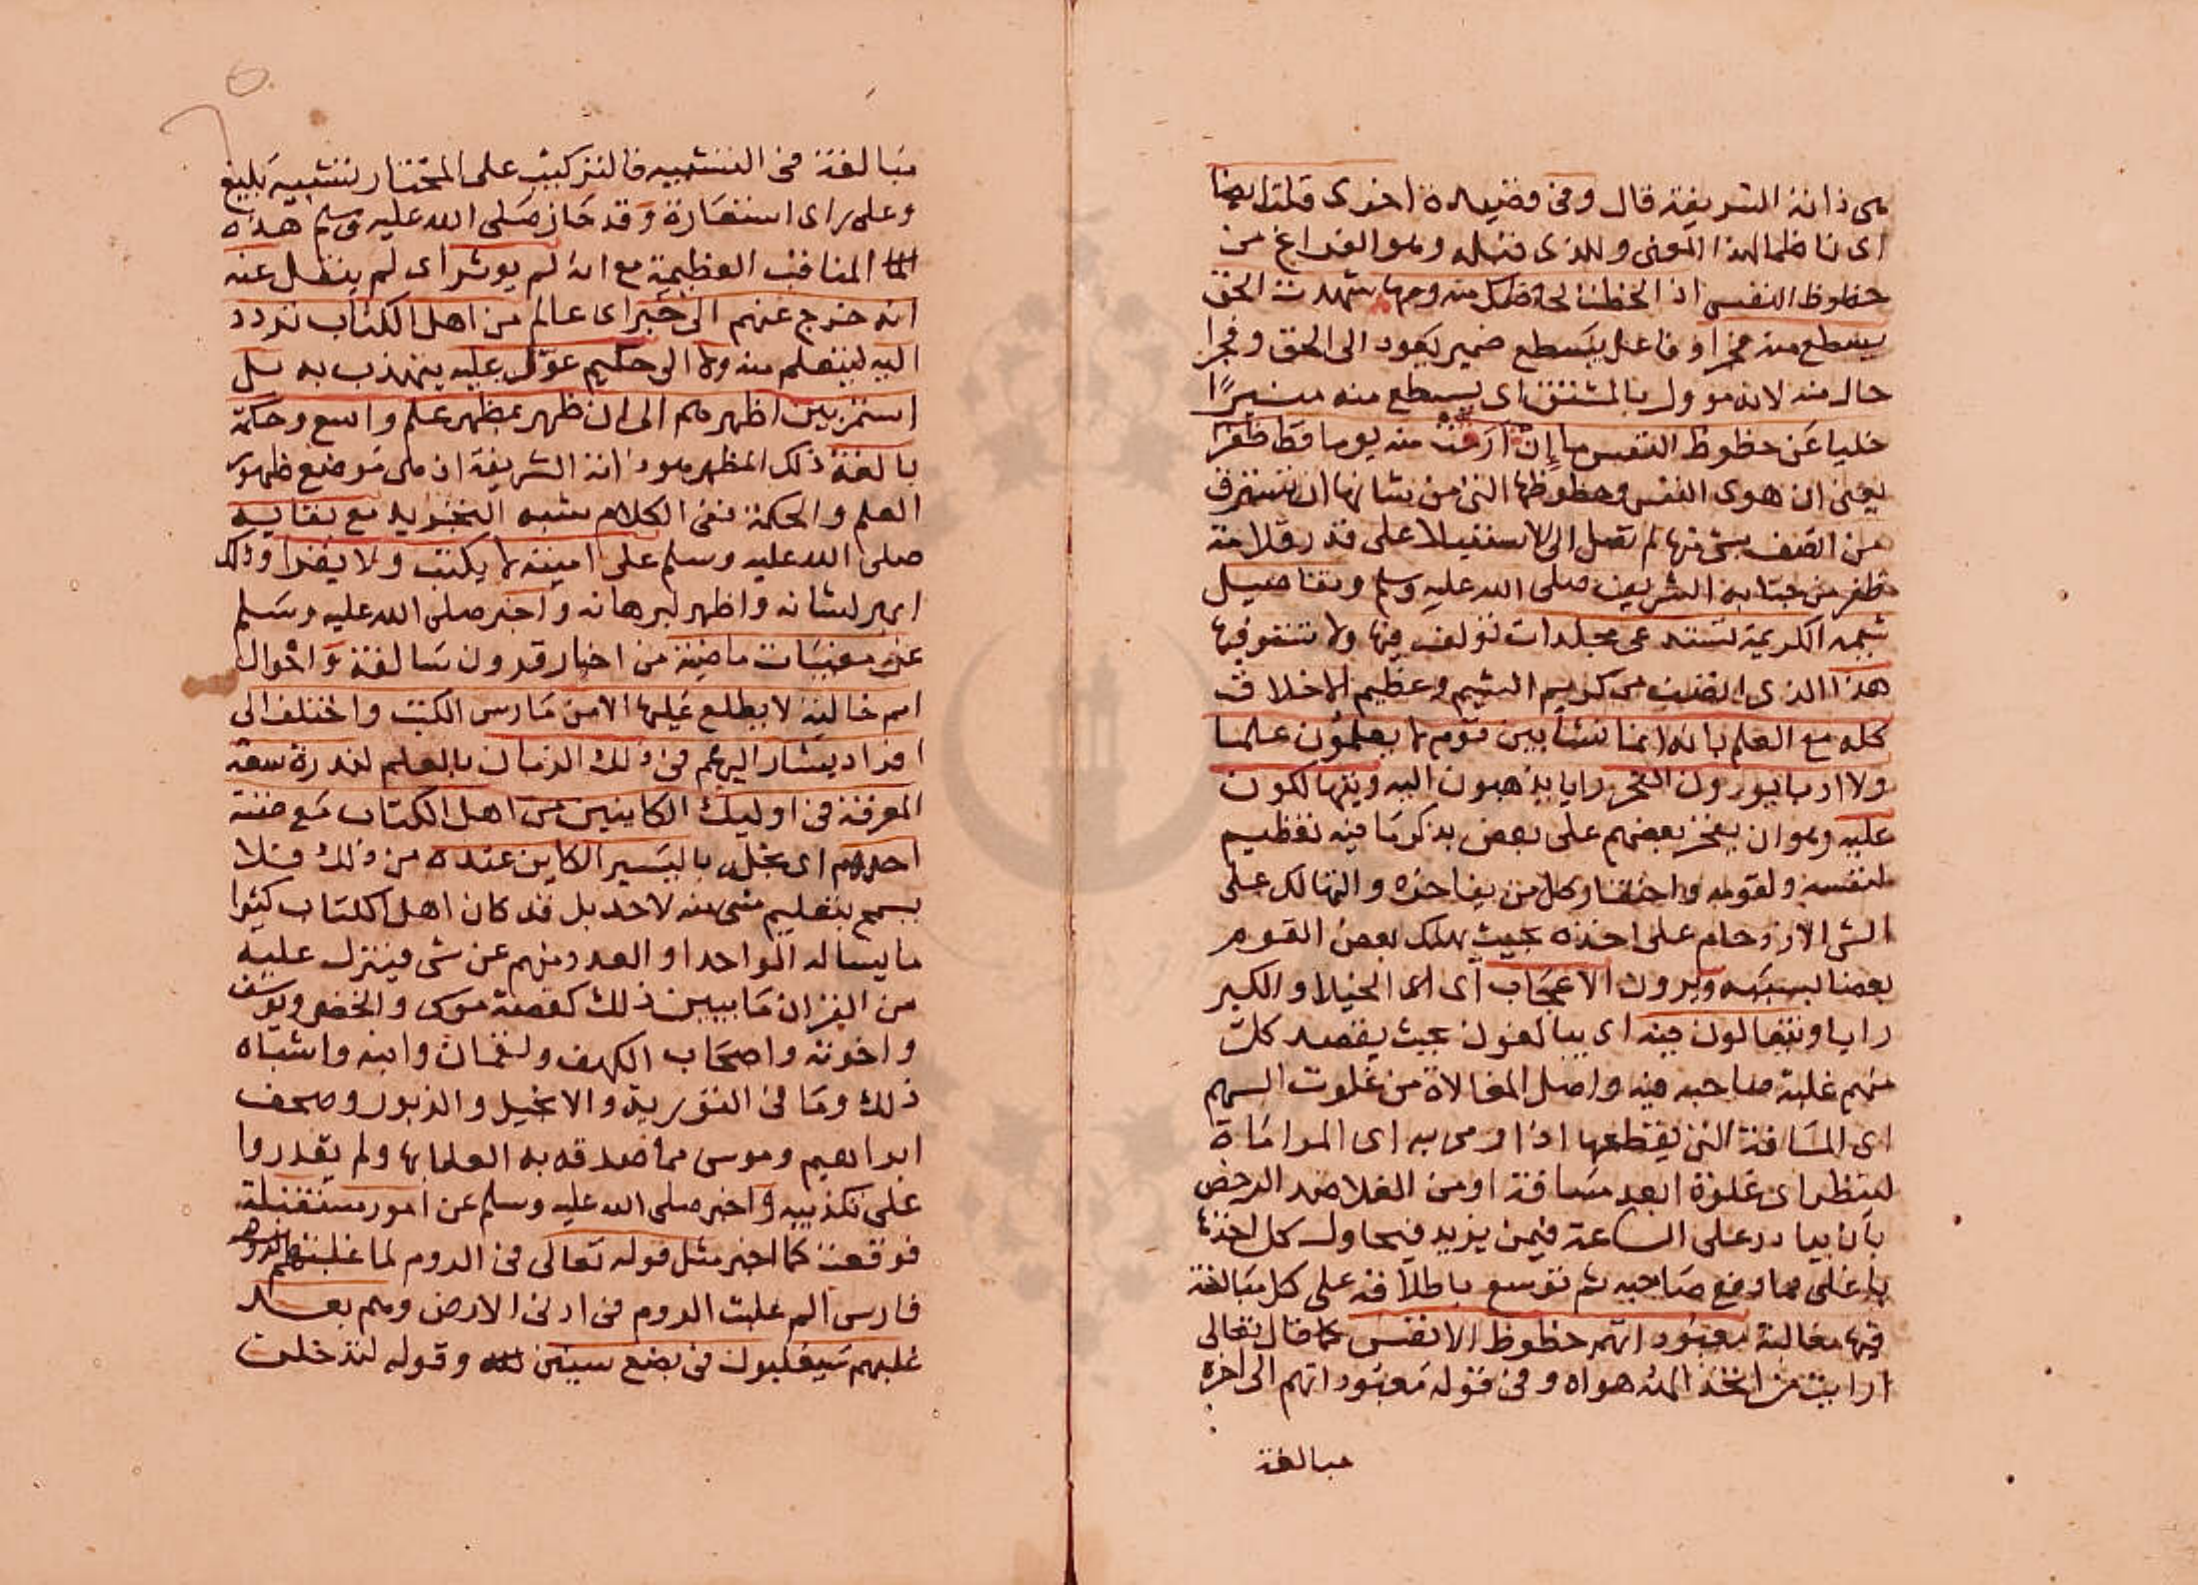 هى ذاته الشريفة قال وفى قصيدة اخرى قلت ايضا
اى ناظما لهذا المعنى وللذى قبله وهو الفراغ من
حظوظ النفس اذا لحظت لحاظك منه وجها شهدت الحق
يسطع منه فجرا وفاعل يسطع ضمير يعود الى الحق وفجرا
حال منه لانه موول بالمشتق اى يسطع منه منيرًا
خليا عن حظوظ النفس ما إن منه يوما قط ظفرا
يعنى ان هوى النفس وحظوظها التى من شانها ان تسترق
من اتصف بشى منها لم تصل الى الاستيلا على قدر قلامة
ظفر من جنابه الشريف صلى الله عليه وسلم وتفاصيل
شيمه الكريمة تستدعى مجلدات تولف فيها ولا تستوفيها
هذا الذى اتصف من كريم الشيم وعظيم الاخلاق
كله مع العلم بانه انما نشا بين قوم لا يعلمون علما
ولا ادبا يورون الفخر رايا يذهبون اليه ويتهالكون
عليه وهو ان يفخر بعضهم على بعض بذكر ما فيه تعظيم
لنفسه ولقومه واحتقار كل من يفاخره والتهالك على
الشى الازدحام على اخذه بحيث يهلك بعض القوم
بعضا بسببه ويرون الاعجاب اى الخيلا والكبر
رايا ويتغالون فيه اى يبالغون بحيث يقصد كل
منهم غلبة صاحبه فيه واصل المغالاة من غلوت السهم
اى المسافة التى يقطعها اذا رمى به اى المراماة
لينظر اى غلوة ابعد مسافة او من الغلا ضد الرخص
بان ينادر على الساعة فيمن يزيد فيحاول كل اخذها
باغلى مما دفع صاحبه ثم توسع باطلاقه على كل مبالغة
فيها مغالبة معبوداتهم حظوظ الانفس كما قال تعالى
ارايت من اتخذ الهه هواه وفى قوله معبوداتهم الى اخره
مبالغة
مبالغة فى التشبيه فالتركيب على المختار تشبيه بليغ
وعلى راى استعارة وقد حاز صلى الله عليه وسلم هذه
المناقب العظيمة مع انه لم يوثر اى لم ينقل عنه
انه خرج عنهم الى حَبر اى عالم من اهل الكتاب تردد
اليه ليتعلم منه ولا الى حكيم عوّل عليه يتهذب به بل
استمر بين اظهرهم الى ان ظهر بمظهر علم واسع وحكمة
بالغة ذلك المظهر هو ذاته الشريفة اذ هى موضع ظهور
العلم والحكمة ففى الكلام شبه التجريد مع بقايه
صلى الله عليه وسلم على اميته لا يكتب ولا يقرا وذلك
ابهر لشانه واظهر لبرهانه واخبر صلى الله عليه وسلم
عن مغيبات ماضية من اخبار قرون سالفة واحوال
امم خالية لا يطلع عليها الا من مارس الكتب واختلف الى
افراد يشار اليهم فى ذلك الزمان بالعلم لندرة سعة
المعرفة فى اوليك الكاينين من اهل الكتاب مع ضنة
احدهم اى بخل باليسير الكاين عنده من ذلك فلا
يسمح بتعليم شى منه لاحد بل قد كان اهل الكتاب كثيرا
ما يساله الواحد او العدد منهم عن شى فينزل عليه
من القران ما يبين ذلك كقصة موسى والخضر ويوسف
واخوته واصحاب الكهف ولقمان وابنه واشباه
ذلك وما فى التورية والانجيل والزبور وصحف
ابراهيم وموسى مما صدقه به العلما بها ولم يقدروا
على تكذيبه واخبر صلى الله عليه وسلم عن امور مستقبلة
فوقعت كما اخبر مثل قوله تعالى فى الروم لما غلبتهم
فارس الم غلبت الروم فى ادنى الارض وهم من بعد
غلبهم سيغلبون فى بضع سنين وقوله لتدخلن